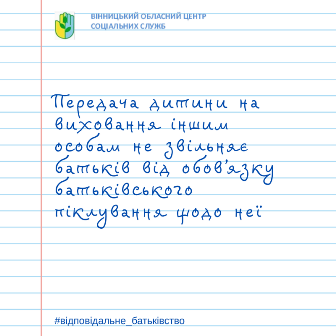 ВІННИЦЬКИЙ ОБЛАСНИЙ ЦЕНТР
СОЦІАЛЬНИХ СЛУЖБ
Передача дитини на
виховання іншим
особам не звільняє
батьків від обов'язку
батьківського
піклування щодо неї
#відповідальне_батьківство